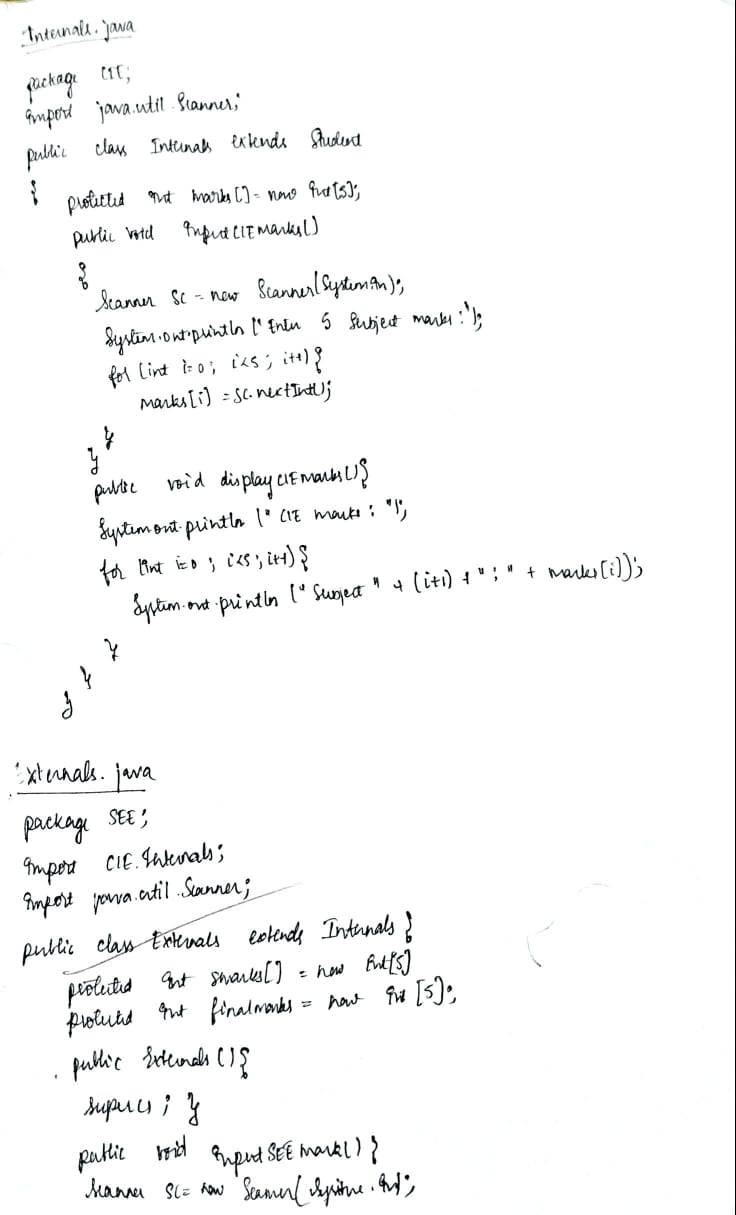 Internals.java
package CIE;
import java.util.Scanner;
public class Internals extends Student
{ protected int marks[] = new int[5];
public void inputCIEmarks()
{
Scanner sc = new Scanner(System.in);
System.out.println("Enter 5 Subject marks:");
for (int i=0; i<5; i++){
marks[i] = sc.nextInt();
}
}
public void displayCIEmarks(){
System.out.println("CIE marks: ");
for (int i=0; i<5; i++){
System.out.println("Subject " + (i+1) + ": " + marks[i]);
}
}
}
Externals.java
package SEE;
import CIE.Internals;
import java.util.Scanner;
public class Externals extends Internals {
protected int smarks[] = new int[5]
protected int finalmarks = new int [5];
public Externals(){
super(); }
public void inputSEEmark(){
Scanner sc = new Scanner(System.in);